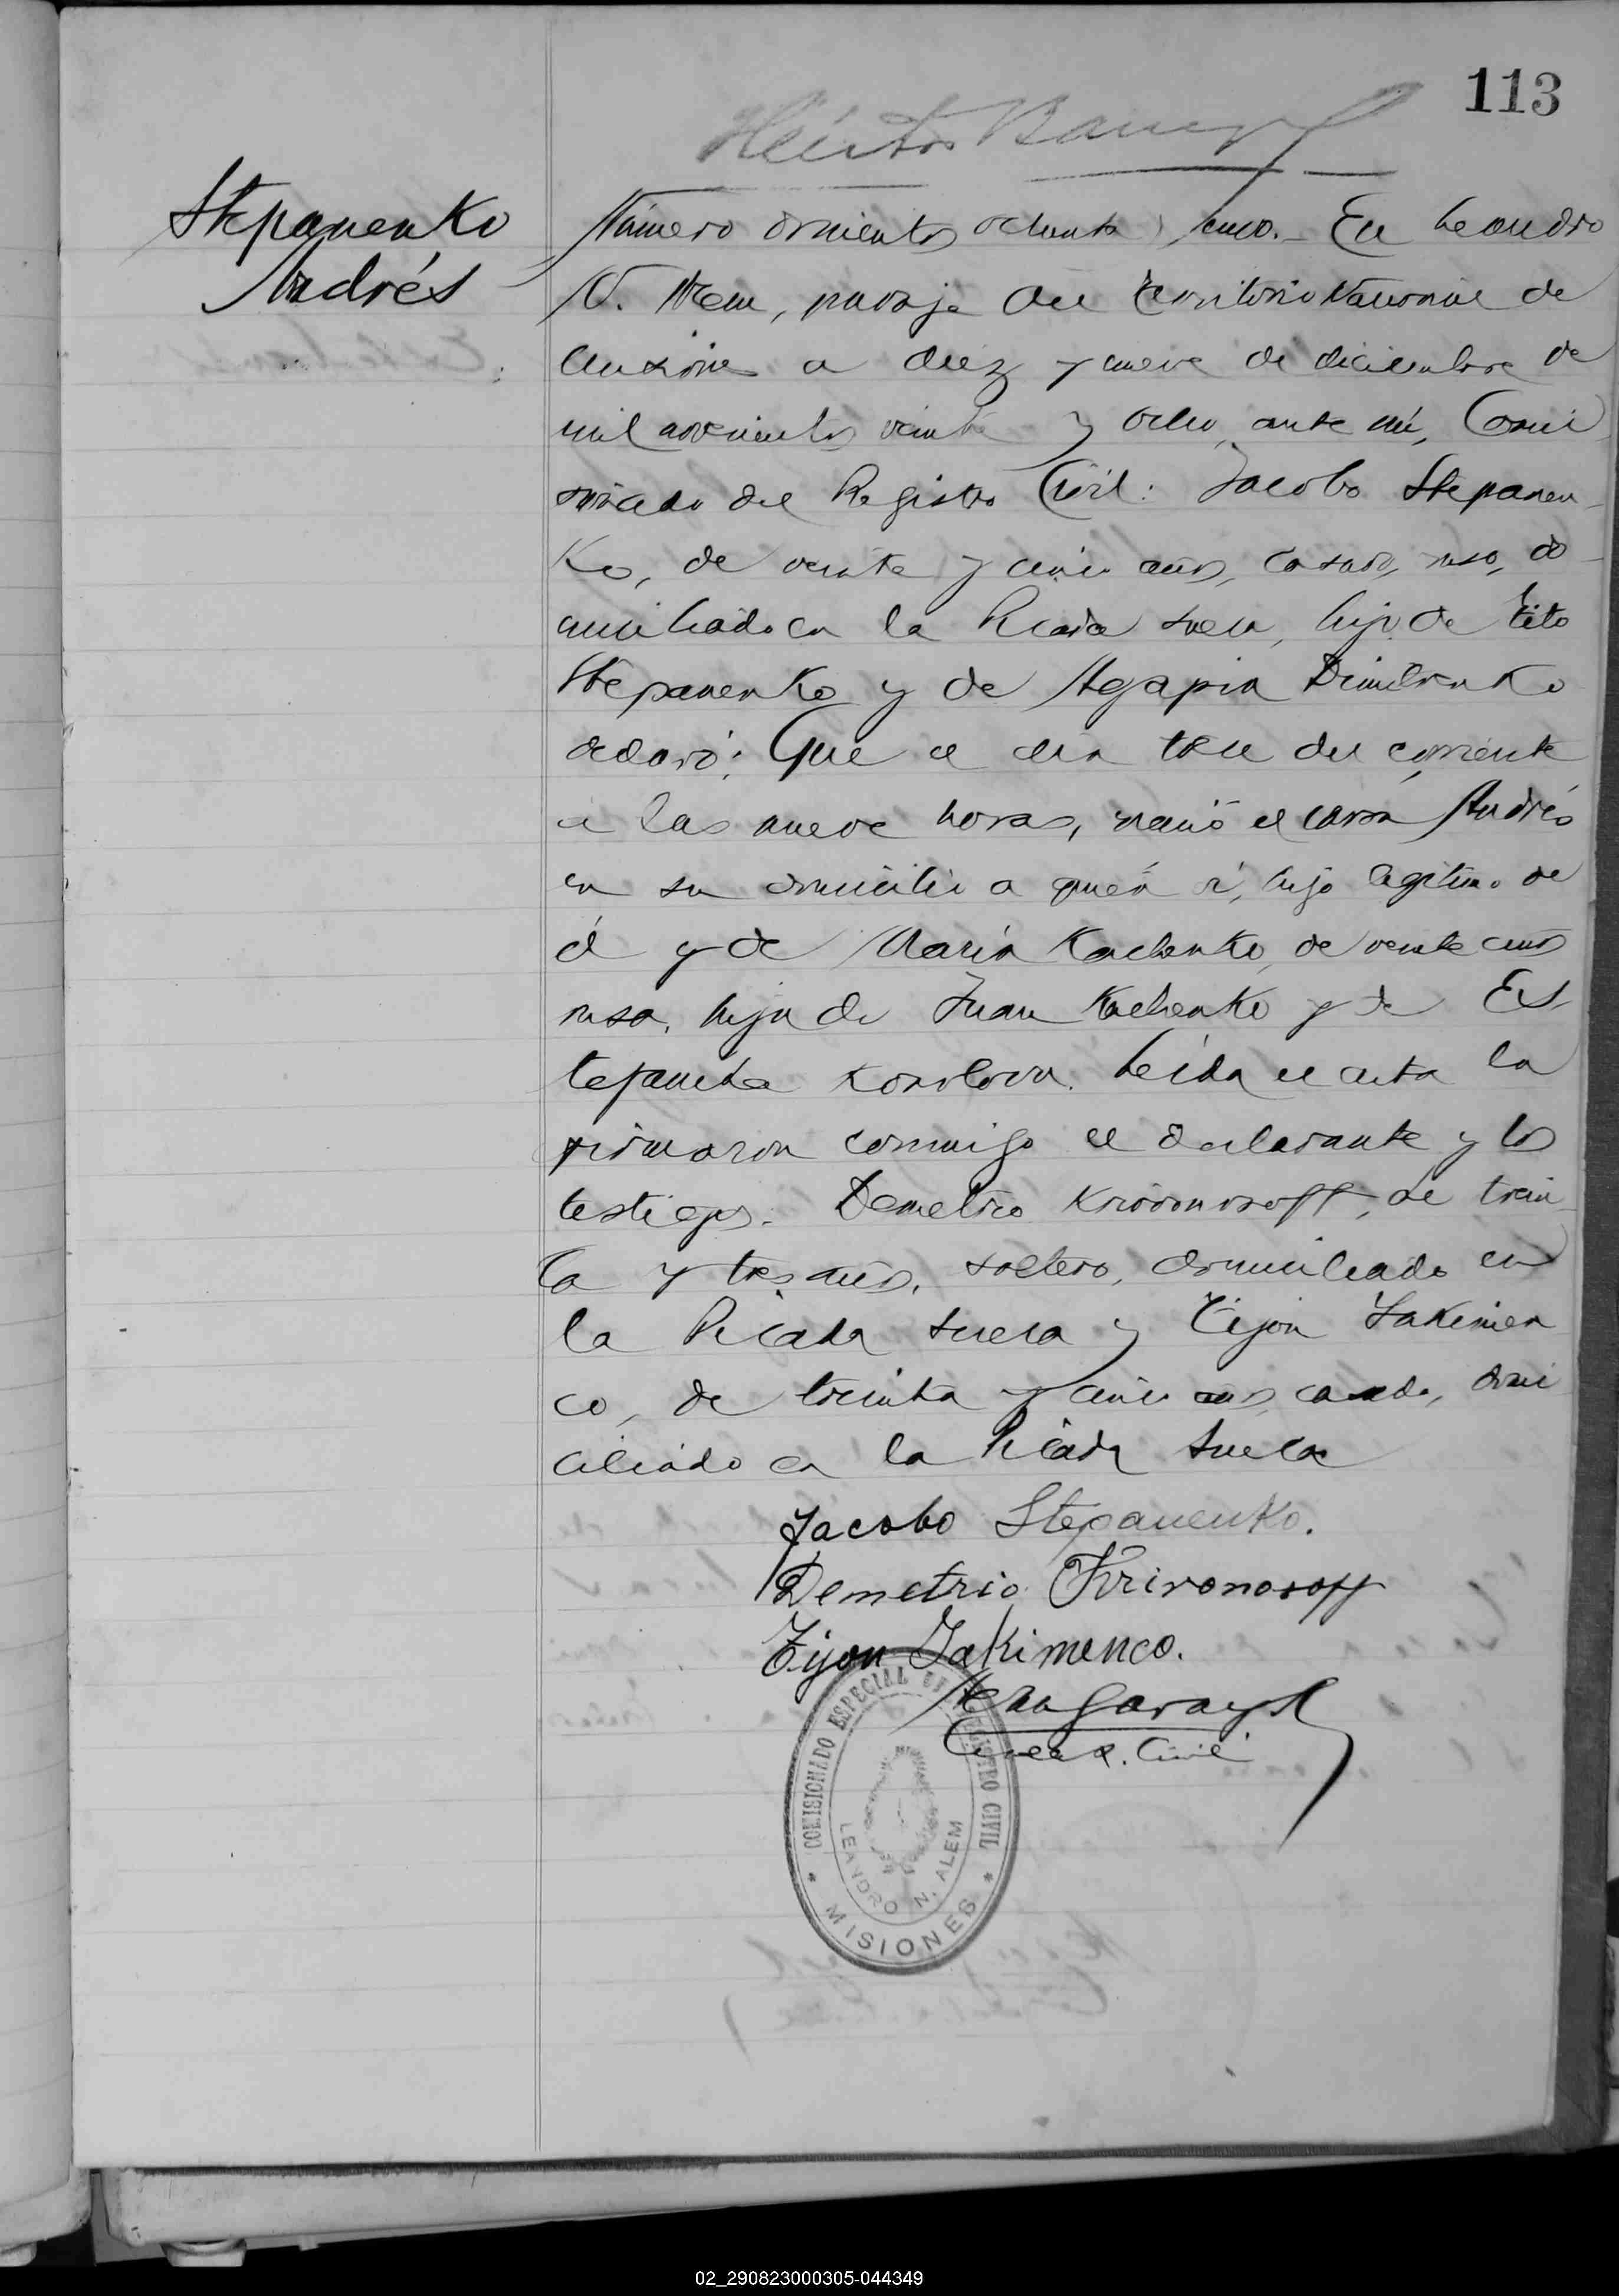 113
Stepanenko
Andrés
Número doscientos ochenta y cinco.- En Leandro
N. Alem, paraje del Territorio Nacional de
Misiones a diez y nueve de diciembre de
mil novecientos veinte y ocho, ante mí, Comi
sionado del Registro Civil: Jacobo Stepanen-
ko, de veinte y cinco años, casado, ruso, do-
miciliado en la Picada Sueca, hijo de Tito
Stepanenko y de Agapia
declaró: Que el día trece del corriente
a las nueve horas, nació el varón Andrés
en su domicilio a quien vi, hijo legítimo de
él y de María Kachenko, de veinte años
rusa, hija de Juan Kachenko y de Es
Leída el acta la
firmaron conmigo el declarante y los
testigos: Demetrio Krivonosoff, de trein-
ta y tres años, soltero, domiciliado en
la Picada Sueca y Tijon Jakimen
co, de treinta y cinco años, casado, domi
ciliado en la Picada Sueca
Jacobo Stepanenko.
Demetrio Krivonosoff
Tijon Jakimenco.
Civil
COMISIONADO ESPECIAL DEL REGISTRO CIVIL
LEANDRO N. ALEM
* MISIONES *
02_290823000305-044349